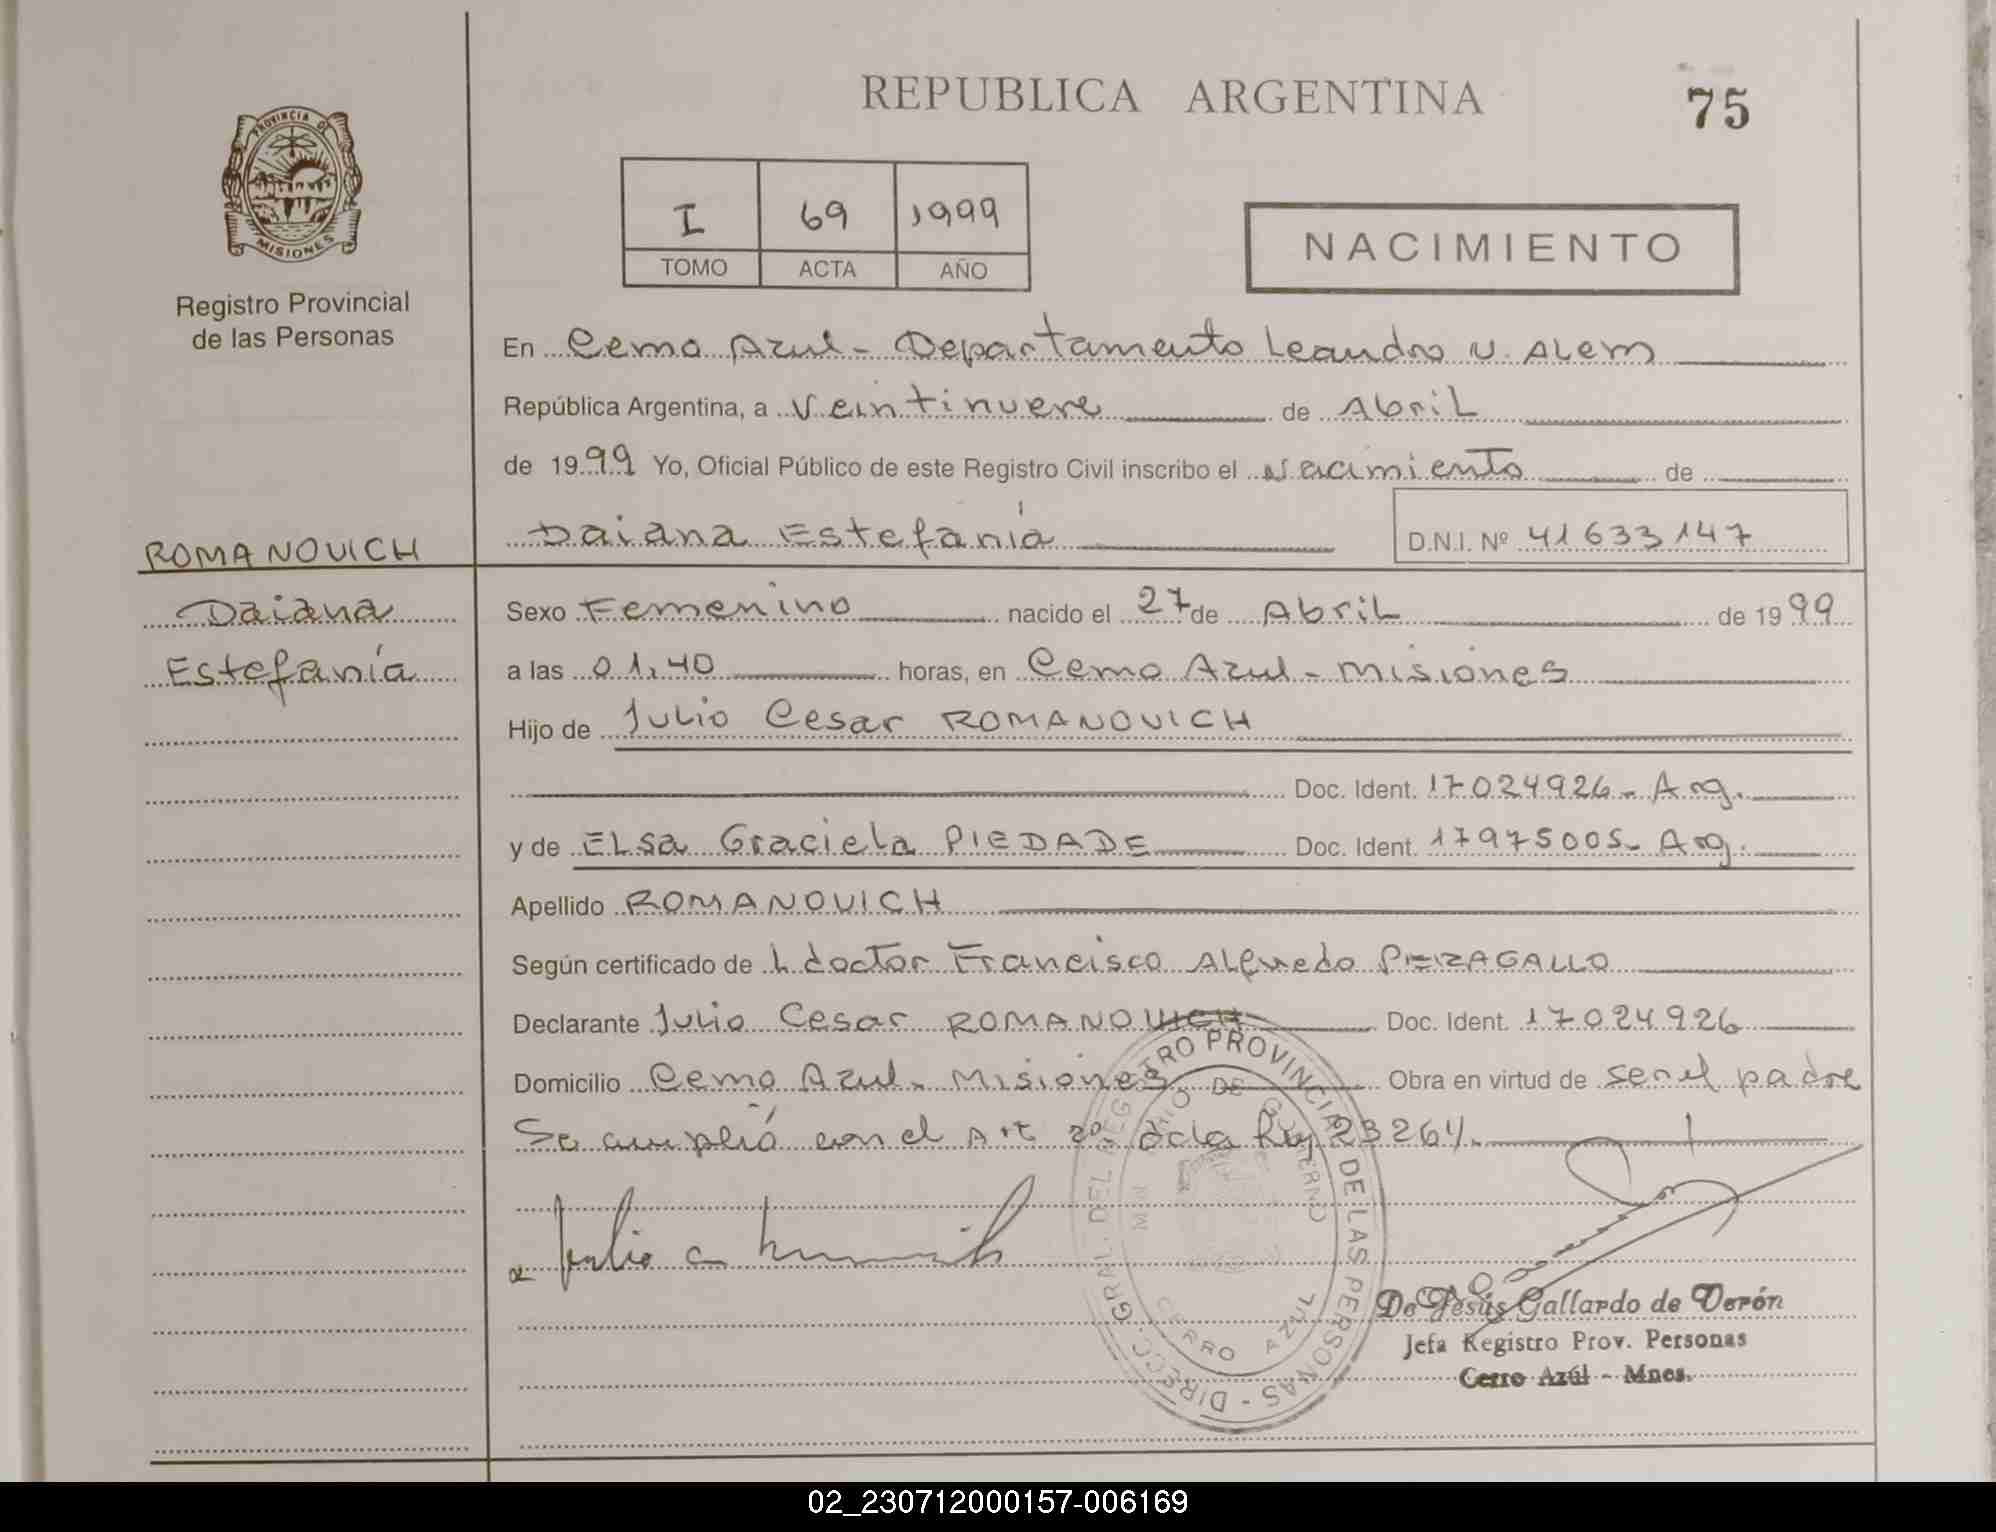 REPUBLICA ARGENTINA
75
PROVINCIA DE
MISIONES
Registro Provincial
de las Personas
I 69 1999
TOMO ACTA AÑO
NACIMIENTO
En Cerro Azul - Departamento Leandro N. ALem
República Argentina, a Veintinueve de Abril
de 1999 Yo, Oficial Público de este Registro Civil inscribo el Nacimiento de
Daiana Estefanía D.N.I. Nº 41633147
ROMANOVICH
Daiana
Estefanía
Sexo Femenino nacido el 27 de Abril de 1999
a las 01,40 horas, en Cerro Azul - Misiones
Hijo de Julio Cesar ROMANOVICH
Doc. Ident. 17024926 - Arg.
y de ELsa Graciela PIEDADE Doc. Ident. 17975005 - Arg.
Apellido ROMANOVICH
Según certificado de L doctor Francisco Alfredo PIERAGALLO
Declarante Julio Cesar ROMANOVICH Doc. Ident. 17024926
Domicilio Cerro Azul - Misiones Obra en virtud de ser el padre
Se cumplió con el Art 2º. de la Ley 23264.
DIRECC. GRAL. DEL REGISTRO PROVINCIAL DE LAS PERSONAS -
MINISTERIO DE GOBIERNO
CERRO AZUL
Julio C
De Jesús Gallardo de Verón
Jefa Registro Prov. Personas
Cerro Azúl - Mnes.
02_230712000157-006169